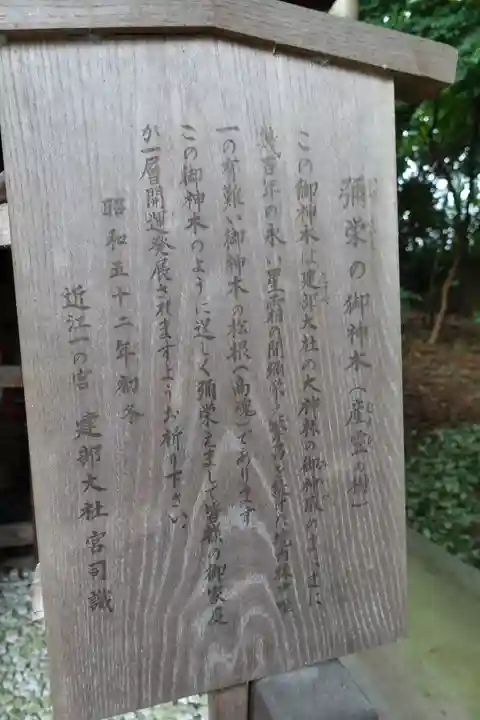 彌栄の御神木(産霊の樹)
この御神木は建部大社の大神様の御神服のまにまに
幾百年の永い星霜の間彌栄え繁
一の有難い御神木の松根(高魂)であります
この御神木のように逞しく彌栄えまして皆様の御家庭
が一層開運発展されますようお祈り下さい
昭和五十二年初冬
近江一の宮 建部大社宮司識